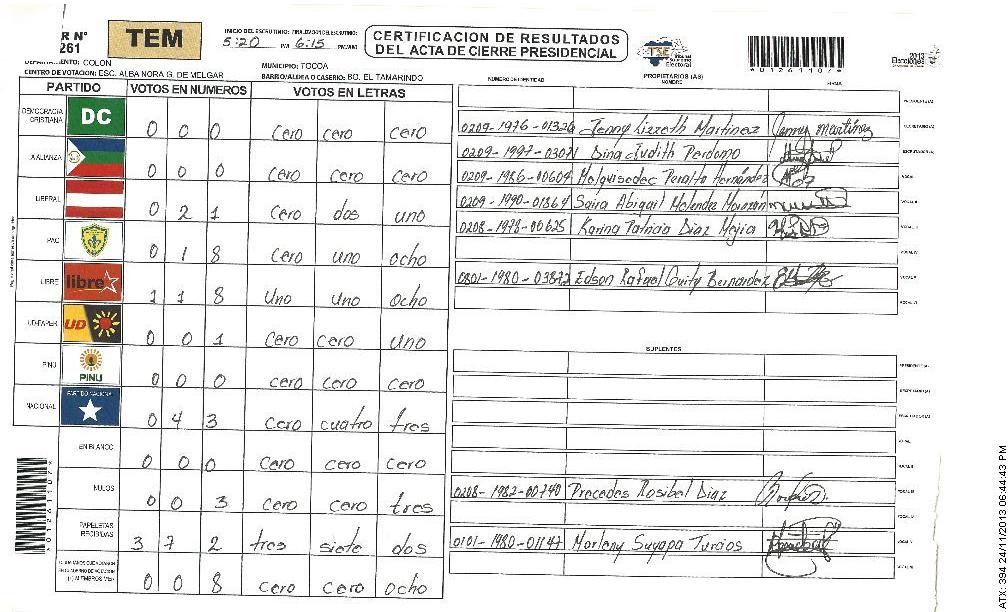 R N° 261
TEM
INICIO DEL ESCRUTINIO: 5:20 PM
FINALIZACION DEL ESCRUTINIO: 6:15 PM/AM
CERTIFICACION DE RESULTADOS
DEL ACTA DE CIERRE PRESIDENCIAL
TSE Tribunal Supremo Electoral
*01261107*
2013
Elecciones
COLON
MUNICIPIO: TOCOA
CENTRO DE VOTACION: ESC. ALBA NORA G. DE MELGAR
BARRIO/ALDEA O CASERIO: BO. EL TAMARINDO
PARTIDO VOTOS EN NUMEROS VOTOS EN LETRAS
DEMOCRACIA CRISTIANA DC 0 0 0 Cero cero cero
ALIANZA 0 0 0 cero cero cero
LIBERAL 0 2 1 cero dos uno
PAC 0 1 8 cero uno ocho
LIBRE libre 1 1 8 Uno Uno Ocho
UD-FAPER UD 0 0 1 cero cero uno
PINU PINU 0 0 0 cero cero cero
NACIONAL PARTIDO NACIONAL 0 4 3 cero cuatro tres
EN BLANCO 0 0 0 cero cero cero
NULOS 0 0 3 cero cero tres
PAPELETAS RECIBIDAS 3 7 2 tres siete dos
0 0 8 cero cero ocho
NUMERO DE IDENTIDAD PROPIETARIOS (AS) NOMBRE FIRMA
PRESIDENTE(A)
0209-1976-01326 Jenny Lizzeth Martinez Jenny Martínez SECRETARIO(A)
0209-1997-03071 Dina Judith Perdomo ESCRUTADOR(A)
0209-1986-00604 Melquisedec Peralta Hernández VOCAL I
0209-1990-01864 Saira Abigail Melendez VOCAL II
0208-1978-00625 Karina Patricia Diaz Mejia VOCAL III
0801-1980-03872 Edson Rafael Guity Bernardez VOCAL V
VOCAL VI
SUPLENTES
PRESIDENTE(A)
SECRETARIO(A)
ESCRUTADOR(A)
VOCAL I
VOCAL II
0208-1982-00740 Precedes Rosibel Diaz VOCAL III
0101-1980-01147 Marleny Suyapa Turcios VOCAL V
VOCAL VI
*01261107*
ATX: 394 24/11/2013 06:44:43 PM